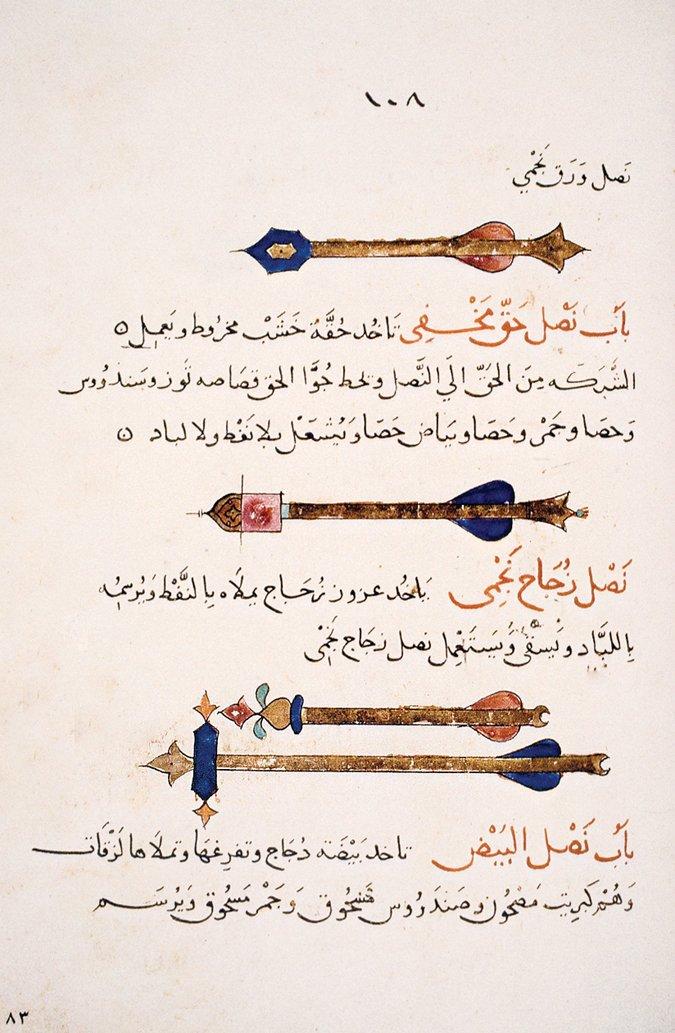 ١٠٨
نصل ورق نجمي
باب نصل حق مخسفى تاخد حقة خشب مخروط ويعمل ٥
الشركه من الحق الي النصل ويحط جوا الحق قصاصه توز وسندروس
وحصا وجمر وحصا وبياض حصا ويشعل بلا نفط ولا لباد ٥
نصل زجاج نجمى ياخد زجاج يملاه بالنفط ويرسمه
باللباد ويسقى ويستعمل نصل زجاج نجمى
باب نصل البيض تاخد بيضة دجاج وتفرغها وتملاها لزقات
وهم كبريت مصحون وصندروس مسحوق وجمر مسحوق ويرسم
٨٣